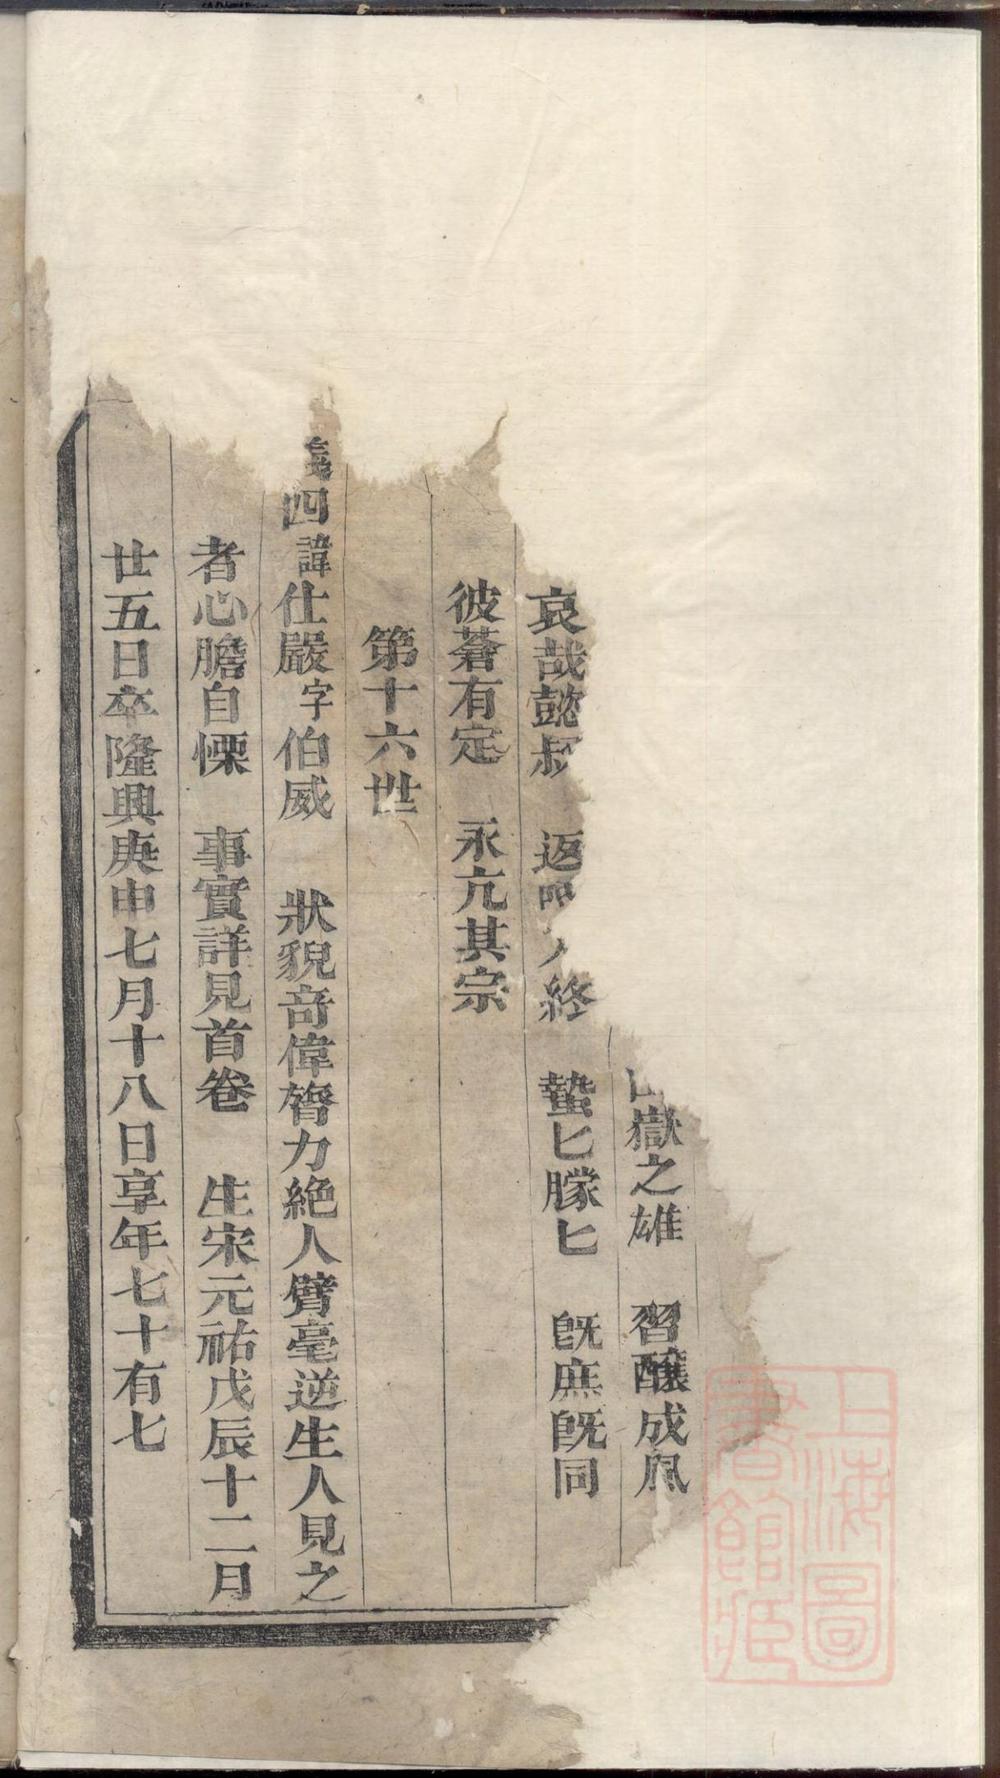 嶽之雄　習釀成風
哀哉懿叔　返　終　蟄匕朦匕　旣庶旣同
彼蒼有定　永亢其宗
第十六世
義四諱仕嚴字伯威　狀貌竒偉膂力絶人臂毫逆生人見之
者心膽自慄　事實詳見首卷　生宋元祐戊辰十二月
廿五日卒隆興庚申七月十八日享年七十有七
上海圖書館藏